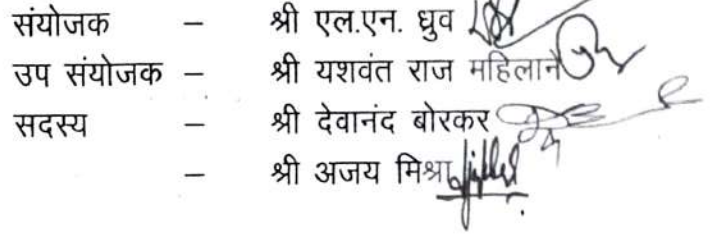 संयोजक – श्री एल.एन. ध्रुव
उप संयोजक – श्री यशवंत राज महिलाने
सदस्य – श्री देवानंद बोरकर
– श्री अजय मिश्रा